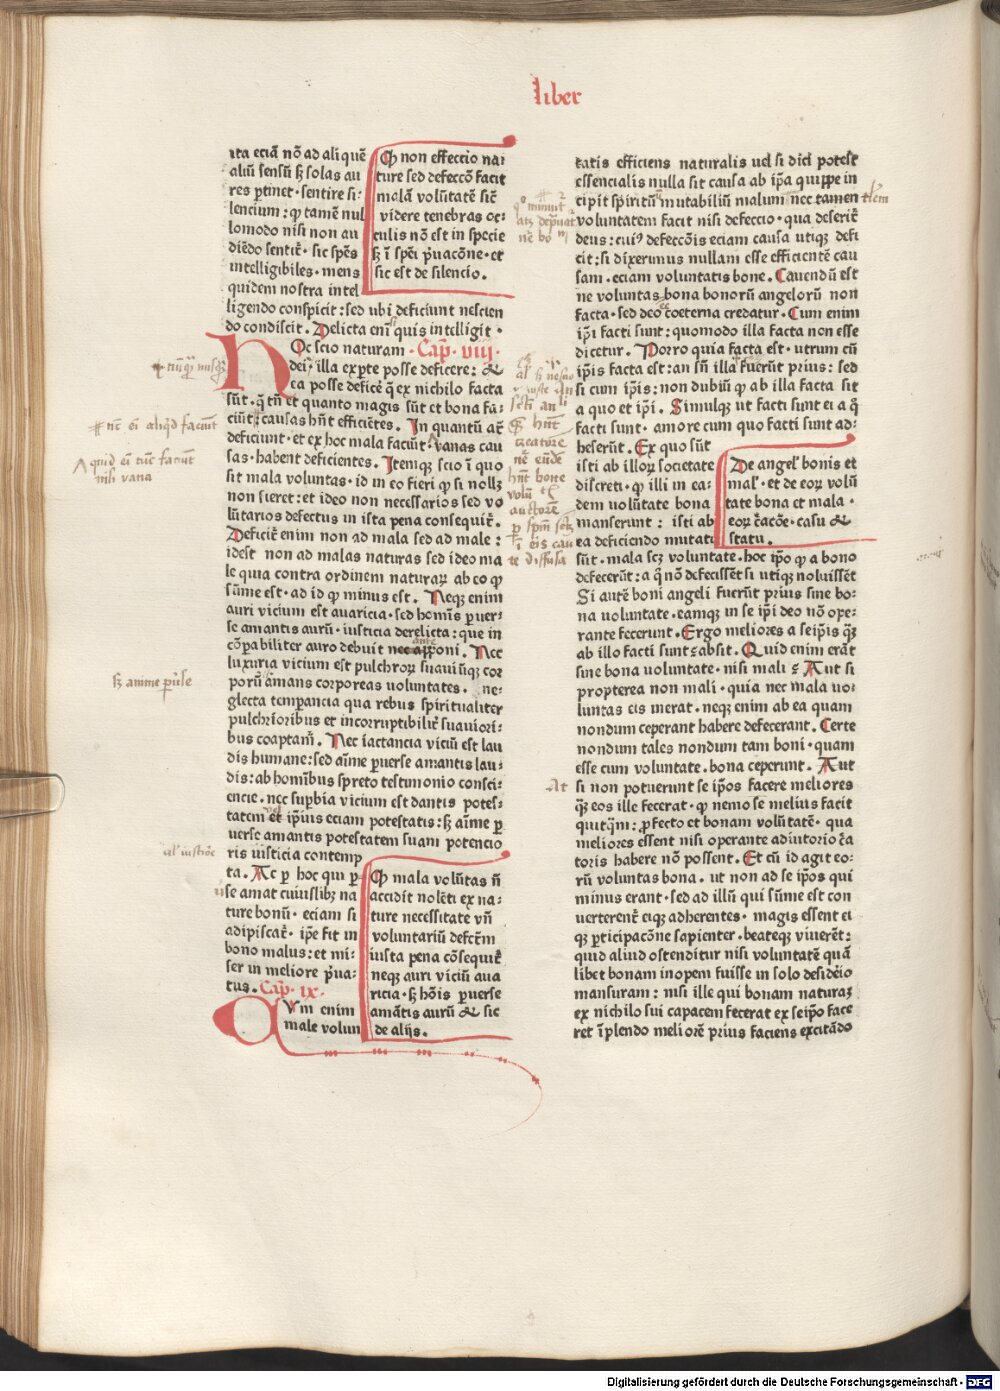 liber
ita eciã nõ ad aliquẽ
aliũ sensũ sꝫ solas au
res ꝑtinet · sentire si-
lencium : ꝙ tamẽ nul
lomodo nisi non au
diẽdo sentit̃ · sic spẽs
intelligibiles · mens
quidem nostra intel
ligendo conspicit : sed ubi deficiunt nescien
do condiscit . Delicta eni quis intelligit ·
Ꝙ non effeccio nat
ture sed defeccõ facit
malã volũtatẽ sic̃
videre tenebras oc-
culis nõ est in specie
sꝫ ĩ spẽi p̃uacõne · et
sic est de silencio .
Hoc scio naturam · Cap̃ · viij ·
dei illa exꝑte posse deficere : &
ea posse deficẽ q̃ ex nichilo facta
sũt · q̃ tñ et quanto magis sũt et bona fa-
ciũt causas hñt efficiẽtes . In quantũ at̃
deficiunt · et ex hoc mala faciũt · vanas cau
sas · habent deficientes . Itemqꝫ scio ĩ quo
sit mala voluntas · id in eo fieri ꝙ si nollꝫ
non fieret : et ideo non necessarios sed vo
lũtarios defectus in ista pena consequit̃ .
Deficit̃ enim non ad mala sed ad male :
idest non ad malas naturas sed ideo ma
le quia contra ordinem naturaꝝ ab eo ꝙ
sũme est · ad id ꝙ minus est . Neqꝫ enim
auri vicium est avaricia · sed homĩs ꝑuer-
se amantis aurũ · iusticia derelicta : que in
cõꝑabiliter auro debuit nec apponi . Nec
luxuria vicium est pulchroꝝ suauiũqꝫ cor
porũ amans corporeas uoluntates . ne-
glecta temꝑancia qua rebus spiritualiter
pulchrioribus et incorruptibilit̃ suauiori-
bus coaptam̃ . Nec iactancia viciũ est lau
dis humane : sed aĩme ꝑuerse amantis lau-
dis : ab homĩbus spreto testimonio consci-
encie . nec suꝑbia vicium est dantis potes-
tatem et ip̃ius eciam potestatis : sꝫ aĩme ꝑ
uerse amantis potestatem suam potencio
ris iusticia contemp
ta . Ac ꝑ hoc qui ꝑ-
se amat cuiuslibꝫ na
ture bonũ · eciam si
adipiscat̃ · ip̃e fit in
bono malus : et mi-
ser in meliore p̃ua-
tus . Cap̃ · ix ·
Cum enim
male volun
Ꝙ mala volũtas ñ
accidit nolẽti ex na-
ture necessitate vñ
voluntariũ defctm̃
iusta pena cõsequit̃
neqꝫ auri viciũ aua
ricia · sꝫ hõis ꝑuerse
amãtis aurũ & sic
de alijs .
tatis efficiens naturalis uel si dici potest
essencialis nulla sit causa ab ip̃a quippe in
cipit spirituũ mutabiliũ malum nec tamen
voluntatem facit nisi defeccio · qua deserit̃
deus : cuiꝰ defeccõis eciam causa utiqꝫ defi
cit : si dixerimus nullam esse efficientẽ cau
sam . eciam voluntatis bone . Cauendũ est
ne voluntas bona bonorũ angelorũ non
facta · sed deo coeterna credatur . Cum enim
ip̃i facti sunt : quomodo illa facta non esse
dicetur . Porro quia facta est · utrum cũ
ip̃is facta est : an sñ illa fuerũt prius : sed
si cum ip̃is : non dubiũ ꝙ ab illa facta sit
a quo et ip̃i . Simulqꝫ ut facti sunt ei a q̃
facti sunt · amore cum quo facti sunt ad-
heserũt . Ex quo sũt
isti ab illoꝝ societate
discreti · ꝙ illi in ea-
dem uolũtate bona
manserunt : isti ab
ea deficiendo mutati
sũt · mala scꝫ voluntate . hoc ip̃o ꝙ a bono
defecerũt : a q̃ nõ defecissẽt si utiqꝫ noluissẽt
Si autẽ boni angeli fuerũt prius sine bo-
na uoluntate · eamqꝫ in se ip̃i deo nõ ope-
rante fecerunt . Ergo meliores a seip̃is q̃ꝫ
ab illo facti sunt · absit . Quid enim erãt
sine bona uoluntate · nisi mali : Aut si
propterea non mali · quia nec mala uo-
luntas eis inerat . neqꝫ enim ab ea quam
nondum ceperant habere defecerant . Certe
nondum tales nondum tam boni · quam
esse cum voluntate . bona ceperunt . Aut
si non potuerunt se ip̃os facere meliores
q̃ꝫ eos ille fecerat · ꝙ nemo se melius facit
quitqm̃ : ꝓfecto et bonam volũtatẽ · qua
meliores essent nisi operante adiutorio c̃a
toris habere nõ possent . Et cũ id agit eo-
rũ voluntas bona . ut non ad se ip̃os qui
minus erant · sed ad illũ qui sũme est con
uerterent̃ eiqꝫ adherentes · magis essent ei
qꝫ ꝑticipacõne sapienter · beateqꝫ viuerẽt :
quid aliud ostenditur nisi voluntatẽ quã
libet bonam inopem fuisse in solo desideio
mansuram : nisi ille qui bonam naturaꝫ
ex nichilo sui capacem fecerat ex seip̃o face
ret ĩplendo meliorẽ prius faciens excitãdo
De angel̃ bonis et
mal̃ · et de eoꝝ volũ
tate bona et mala ·
eoꝝ c̃acõe · casu &
statu .
sꝫ anime ꝑuerse
At
Digitalisierung gefördert durch die Deutsche Forschungsgemeinschaft - DFG